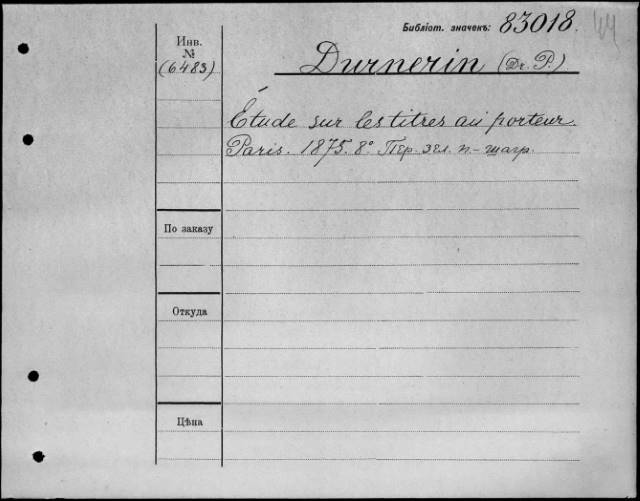 Библіот. значекъ: 83018. 44
Инв.
№
(6483)
Durnerin (Dr. P.)
Étude sur les titres au porteur.
Paris. 1875. 8° Пер. зел. п.-шагр.
По заказу
Откуда
Цѣна